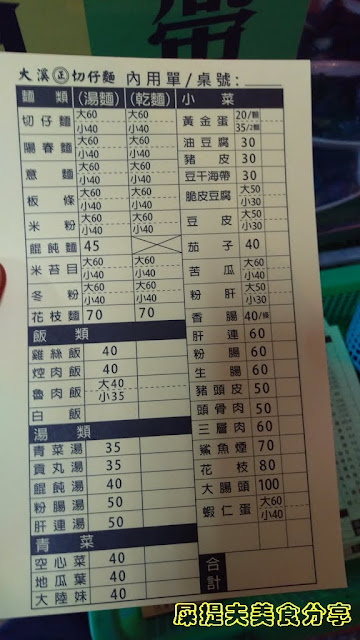 大溪㊣切仔麵 內用單/桌號:
麵類 (湯麵) (乾麵)
切仔麵 大60 小40 大60 小40
陽春麵 大60 小40 大60 小40
意麵 大60 小40 大60 小40
板條 大60 小40 大60 小40
米粉 大60 小40 大60 小40
餛飩麵 45
米苔目 大60 小40 大60 小40
冬粉 大60 小40 大60 小40
花枝麵 70 70
飯類
雞絲飯 40
焢肉飯 40
魯肉飯 大40 小35
白飯
湯類
青菜湯 35
貢丸湯 35
餛飩湯 40
粉腸湯 50
肝連湯 50
青菜
空心菜 40
地瓜葉 40
大陸妹 40
小菜
黃金蛋 20/顆 35/2顆
油豆腐 30
豬皮 30
豆干海帶 30
脆皮豆腐 大50 小30
豆皮 大50 小30
茄子 40
苦瓜 大60 小40
粉肝 大50 小30
香腸 40/條
肝連 60
粉腸 60
生腸 60
豬頭皮 50
頭骨肉 50
三層肉 60
鯊魚煙 70
花枝 80
大腸頭 100
蝦仁蛋 大60 小40
合計
屎提夫美食分享